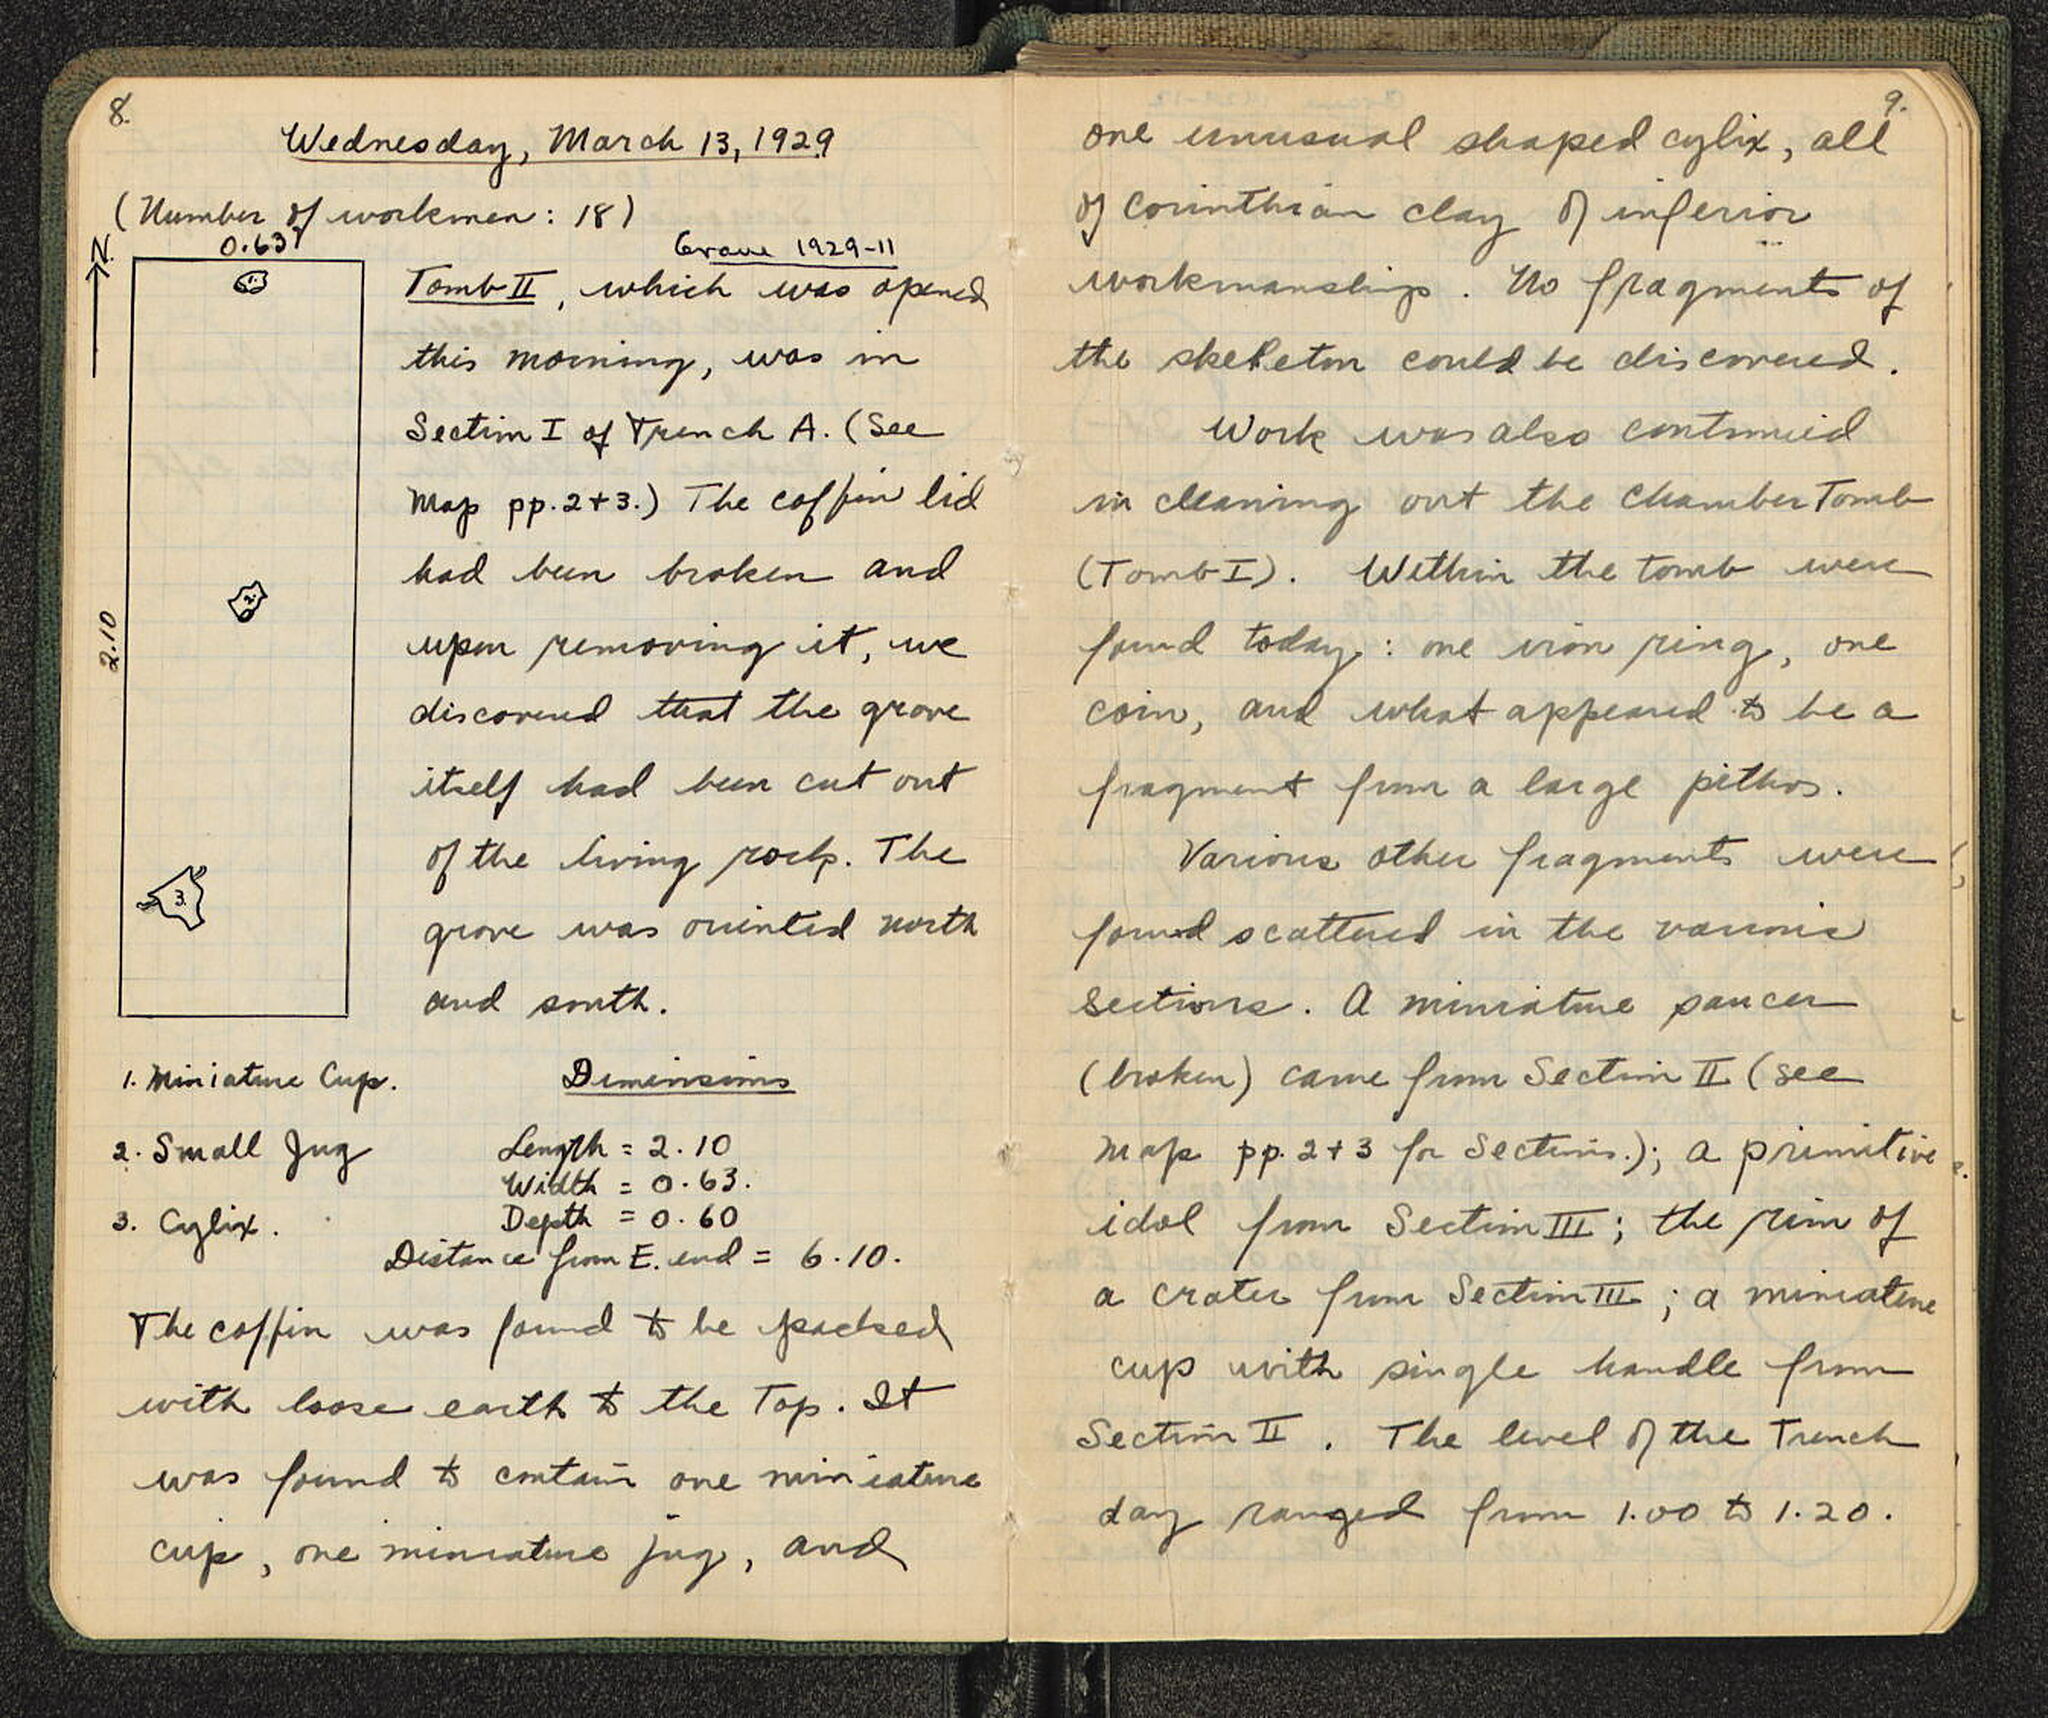 8.
Wednesday, March 13, 1929
(Number of workmen: 18)
N.
0.63
Grave 1929-11
1.
2.
3.
2.10
Tomb II, which was opened
this morning, was in
Section I of Trench A. (See
Map pp. 2 + 3.) The coffin lid
had been broken and
upon removing it, we
discovered that the grave
itself had been cut out
of the living rock. The
grave was oriented north
and south.
1. Miniature Cup.
2. Small Jug
3. Cylix.
Dimensions
Length = 2.10
Width = 0.63.
Depth = 0.60
Distance from E. end = 6.10.
The coffin was found to be packed
with loose earth to the Top. It
was found to contain one miniature
cup, one miniature jug, and
9.
one unusual shaped cylix, all
of Corinthian clay of inferior
workmanship. No fragments of
the skeleton could be discovered.
Work was also continued
in cleaning out the Chamber Tomb
(Tomb I). Within the tomb were
found today: one iron ring, one
coin, and what appeared to be a
fragment from a large pithos.
Various other fragments were
found scattered in the various
sections. A miniature saucer
(broken) came from Section II (see
Map pp. 2 + 3 for Sections.); a primitive
idol from Section III; the rim of
a crater from Section III; a miniature
cup with single handle from
Section II. The level of the Trench
day ranged from 1.00 to 1.20.